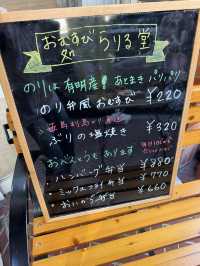 おむすび
処 らりる堂
のりは有明産! あとまき パリパリ
のり弁風 おむすび ¥220
ぶりの塩焼き ¥320
おべんとうもあります
・ハンバーグ弁当 ¥880
・ミックスフライ弁当 ¥770
弁当 ¥660